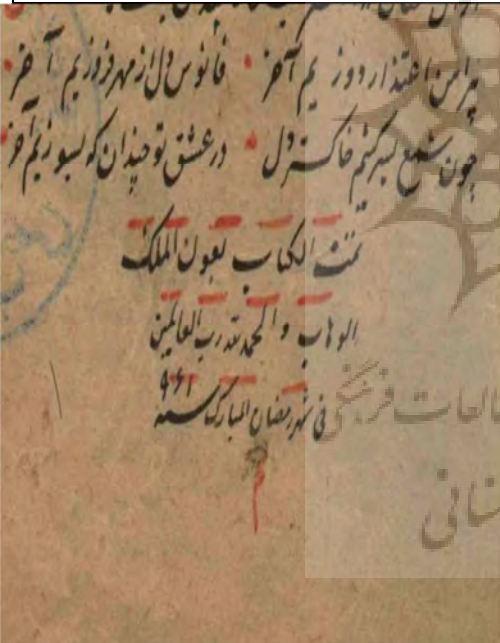 پیراهن اعتذار دوزیم آخر فانوس دل از مهر فروزیم آخر
چون شمع بسر کنیم خاکستر دل در عشق تو چندان که بسوزیم آخر
تمت الکتاب بعون الملک
الوهاب والحمد لله رب العالمین
فی شهر رمضان المبارک سنه ۹۶۱
م